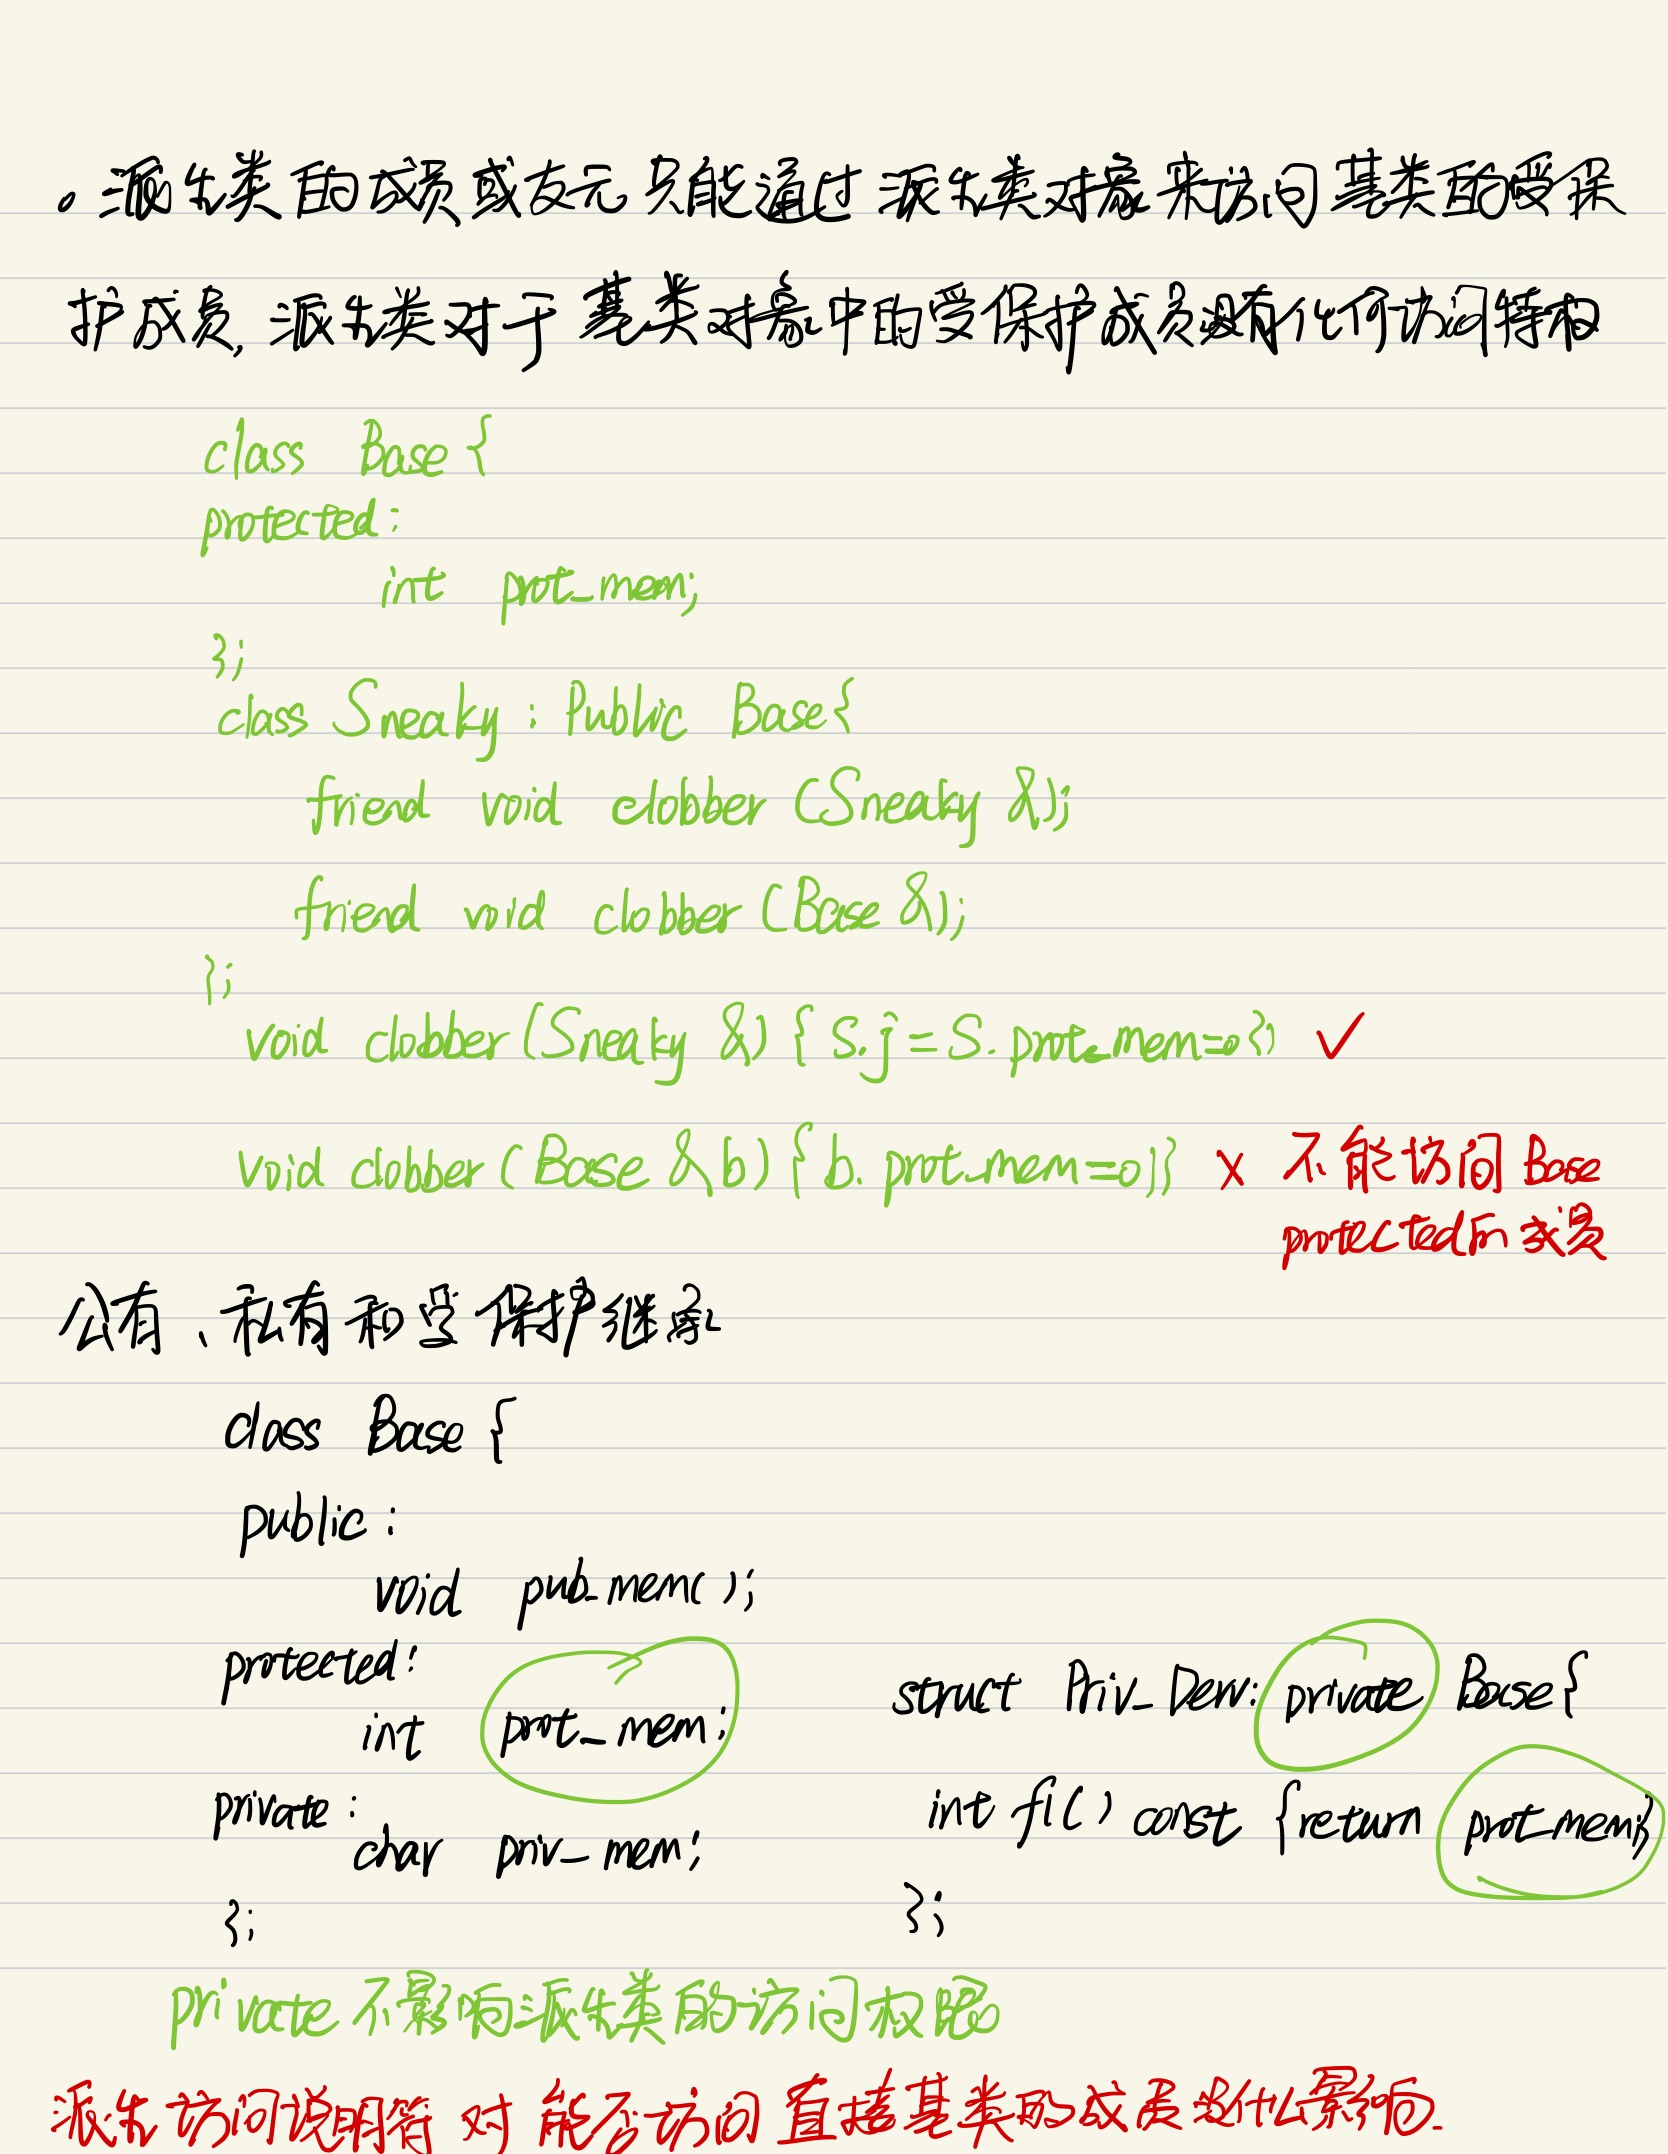 。派生类的成员或友元只能通过派生类对象来访问基类的受保
护成员,派生类对于基类对象中的受保护成员没有任何访问特权
class Base {
protected:
int prot_mem;
};
class Sneaky : Public Base{
friend void clobber (Sneaky &);
friend void clobber (Base &);
};
void clobber (Sneaky &) { S.j = S. prot_mem=0 }; ✓
void clobber (Base & b) { b. prot_mem=0;} × 不能访问 Base
protected的成员
公有、私有和受保护继承
class Base {
public :
void pub_mem();
protected:
int prot_mem;
private :
char priv_mem;
};
struct Priv_Derv: private Base{
int f1() const {return prot_mem;}
};
private 不影响派生类的访问权限
派生访问说明符对能否访问直接基类的成员没什么影响.